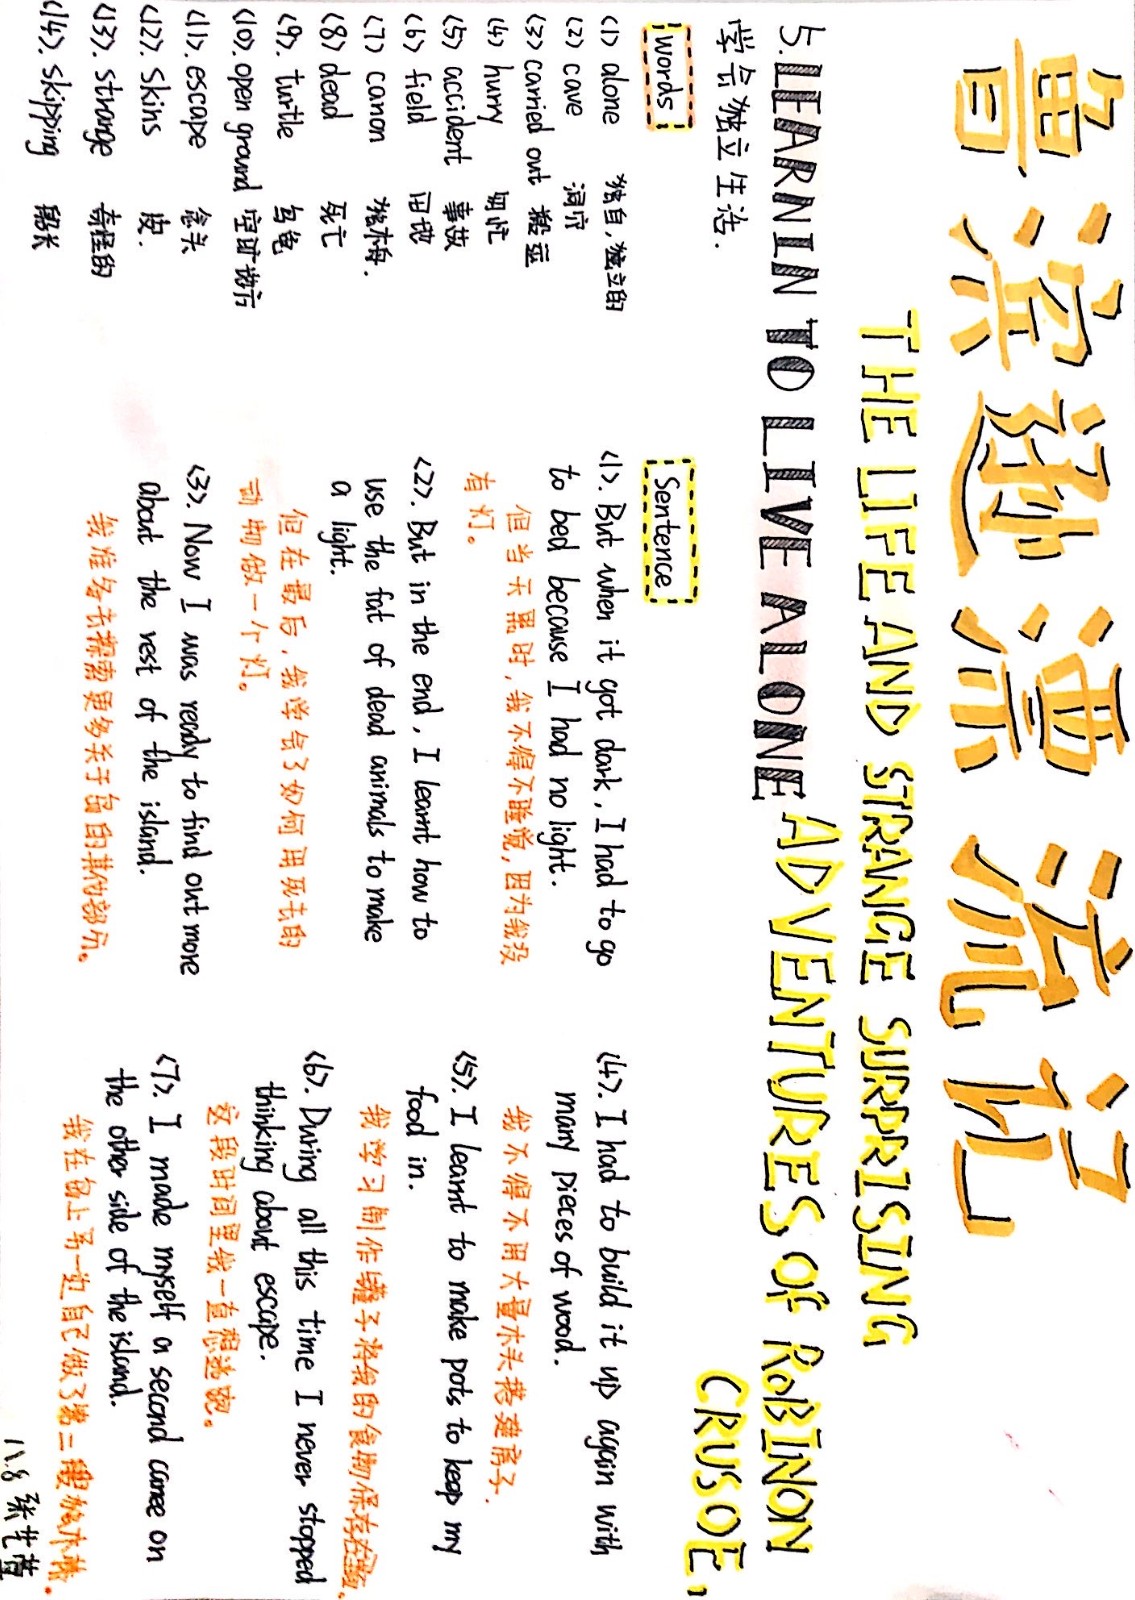 鲁滨逊漂流记
THE LIFE AND STRANGE SURPRISING
ADVENTURES OF ROBINON
CRUSOE,
5. LEARNIN TO LIVE ALONE
学会独立生活.
words
<1> alone 独自,独立的
<2> cave 洞穴
<3> carried out 搬运
<4> hurry 匆忙
<5> accident 事故
<6> field 田地
<7> canon 独木舟.
<8> dead 死亡
<9>. turtle 乌龟
<10>. open ground 空旷场所
<11>. escape 念头
<12>. skins 皮.
<13>. strange 奇怪的
<14>. skipping 船长
Sentence
<1>. But when it got dark, I had to go
to bed because I had no light.
但当天黑时,我不得不睡觉,因为我没
有灯。
<2>. But in the end, I learnt how to
use the fat of dead animals to make
a light.
但在最后,我学会了如何用死去的
动物做一个灯。
<3>. Now I was ready to find out more
about the rest of the island.
我准备去探索更多关于岛的其他部分。
<4>. I had to build it up again with
many pieces of wood.
我不得不用大量木头搭建房子.
<5>. I learnt to make pots to keep my
food in.
我学习制作罐子将我的食物保存在.
<6>. During all this time I never stopped
thinking about escape.
这段时间里我一直想逃跑。
<7>. I made myself a second canoe on
the other side of the island.
我在岛上另一边自己做了第二艘独木舟.
八.8 张艺萱